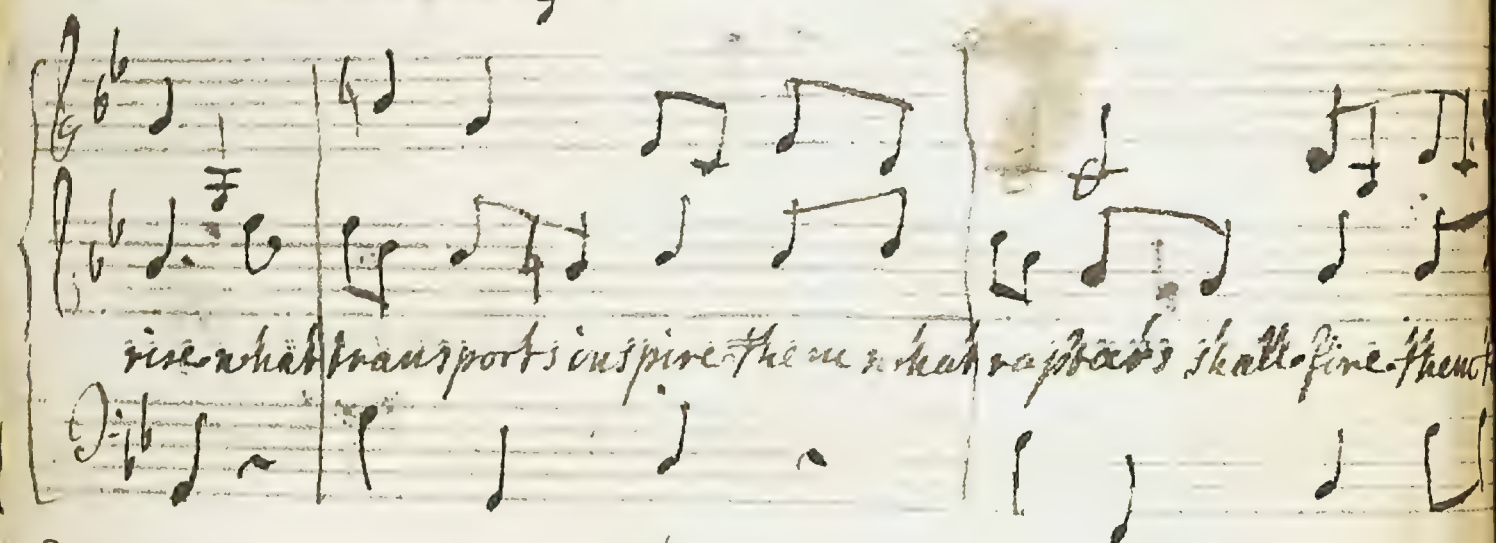 rise what transports inspire them what rapturs shall fire them